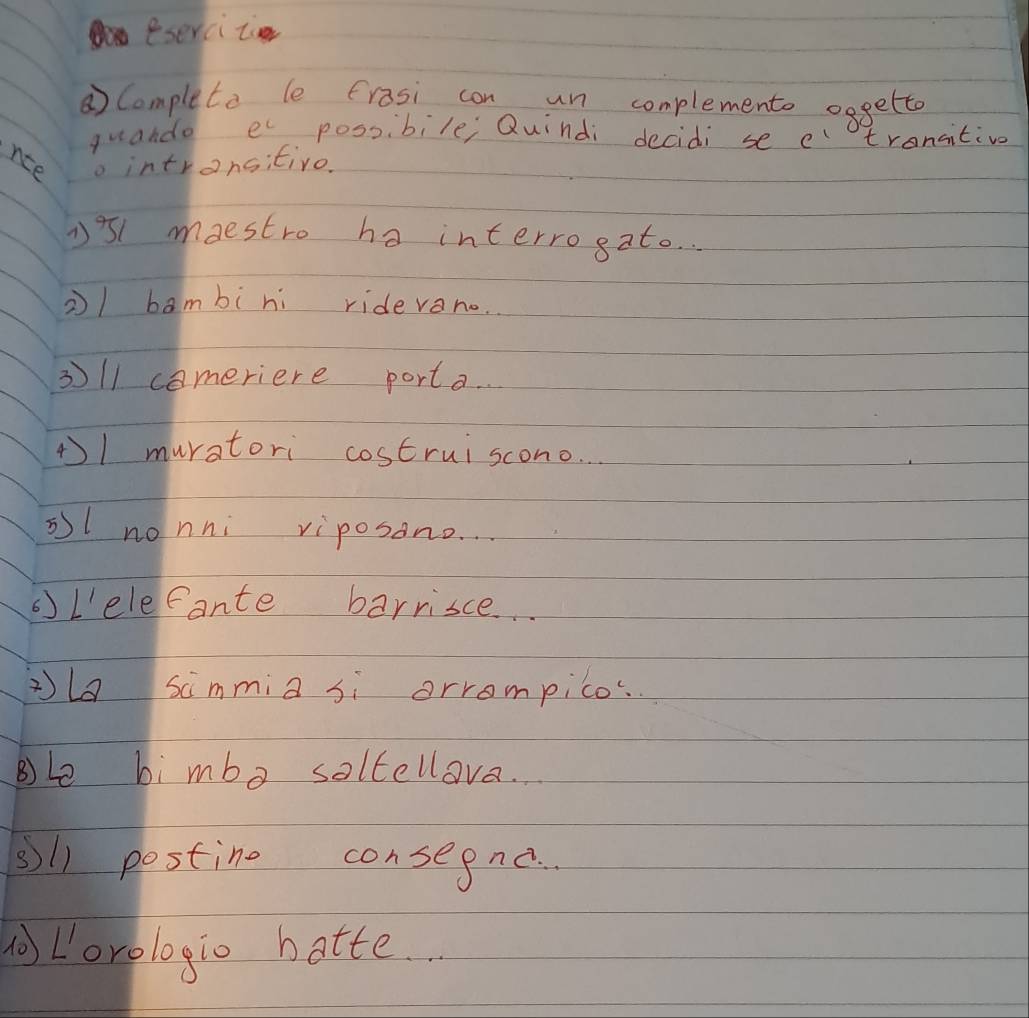 Esercizi
a) Completa le frasi con un complemento oggetto
quando e' possibile; Quindi decidi se e' transitivo
nte o intransitivo.
1) Il maestro ha interrogato...
2) I bambini ridevano...
3) Il cameriere porta...
4) I muratori costruiscono...
5) I nonni riposano...
6) L'elefante barrisce...
7) La scimmia si arrampico'...
8) La bimba saltellava...
9) Il postino consegna...
10) L'orologio batte...